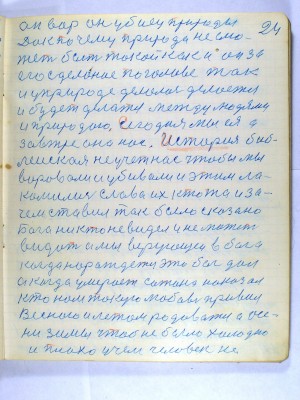 он вор он убиец природы 24
Дак почему природа не смо-
жет быть такой как и он за
его сделоное по голове так
и у природе делолося делоется
и будет делаться между людьми
и природою, Сегодня мы ея а
завтре она нас, История биб-
лейская не учет нас чтобы мы
воровали и убивали и этим ла-
комились слава их кто та и за-
чем ставил так было сказано
Бога никто не видел и не может
видеть а мы верующия в бога
когда нарождается это бог дал
а когда умирает сатана наказал
кто нам такую любовь привил
Весною и летом родовать а осе-
ни зимы чтоб не было холодно
и плохо и чем человек не